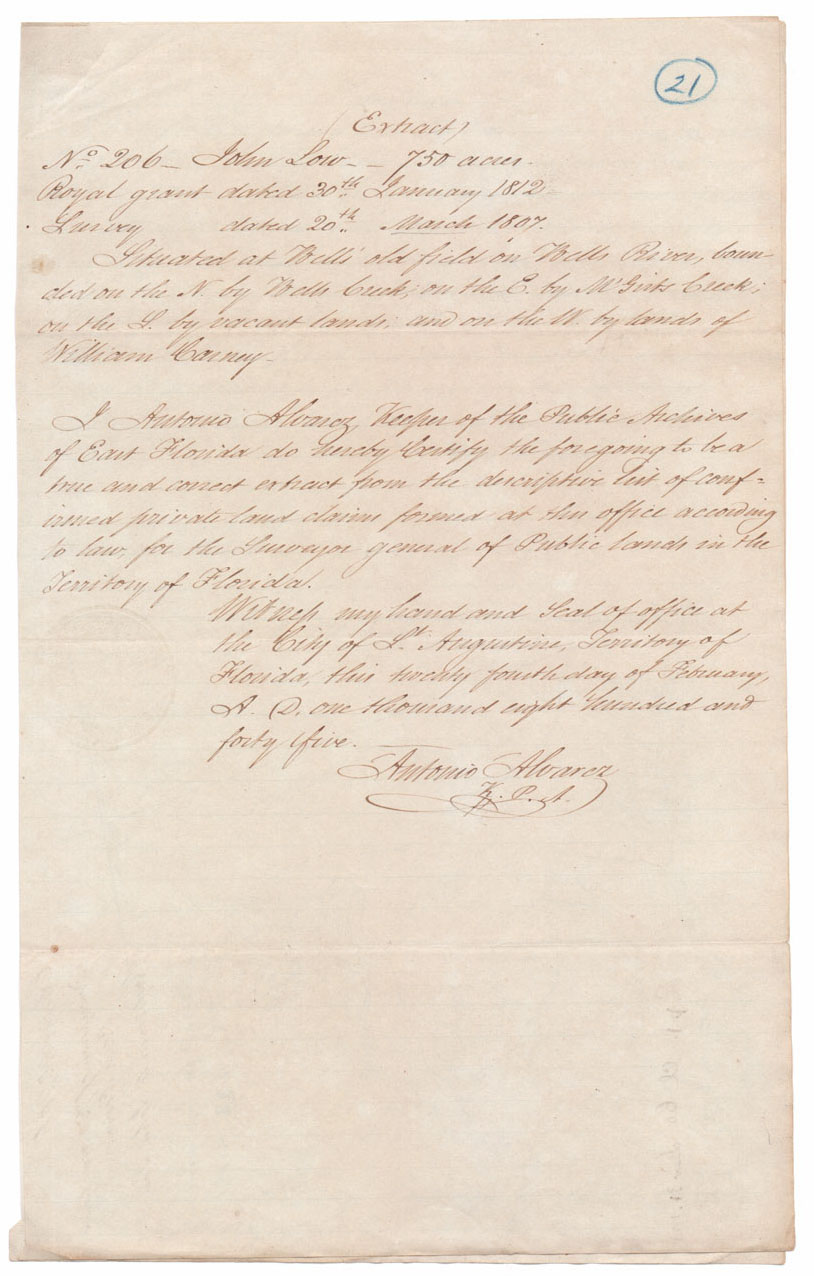 21
(Extract)
No. 206 - John Low - - 750 acres -
Royal grant dated 30th. January 1812 -
Survey dated 20th. March 1807.
Situated at Wells' old field on Wells River, boun-
ded on the N. by Wells Creek; on the E. by McGirts Creek;
on the S. by vacant lands; and on the W. by lands of
William Carney -
I Antonio Alvarez, Keeper of the Public Archives
of East Florida do hereby Certify the foregoing to be a
true and correct extract from the descriptive list of conf-
irmed private land claims formed at this office according
to law, for the Surveyor general of Public lands in the
Territory of Florida.
Witness my hand and Seal of office at
the City of St. Augustine, Territory of
Florida, this twenty fourth day of February,
A. D. one thousand eight hundred and
forty five.
Antonio Alvarez
K. P. A.